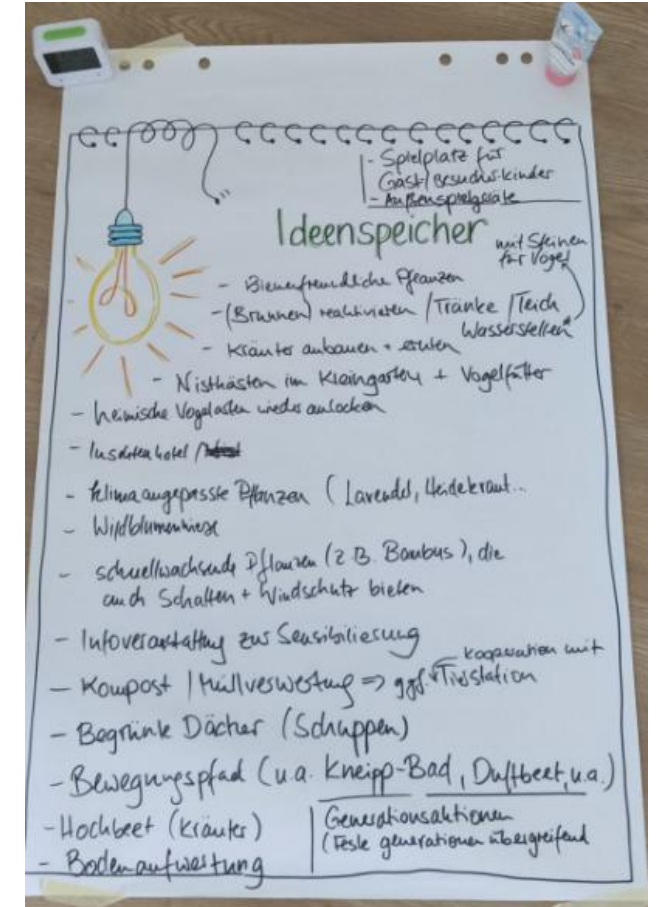 - Spielplatz für
Gast-/Besuchskinder
- Außenspielgeräte
Ideenspeicher
mit Steinen
für Vögel
- Bienenfreundliche Pflanzen
- (Brunnen) reaktivieren / Tränke / Teich
Wasserstellen*
- Kräuter anbauen + ernten
- Nistkästen im Kleingarten + Vogelfutter
- heimische Vogelarten wieder anlocken
- Insektenhotel /
- Klimaangepasste Pflanzen ( Lavendel, Heidekraut...
- Wildblumenwiese
- schnellwachsende Pflanzen (z B. Bambus), die
auch Schatten + Windschutz bieten
- Infoveranstaltung zur Sensibilisierung
- Kompost / Müllverwertung => ggf. Tierstation
Kooperation mit
- Begrünte Dächer (Schuppen)
- Bewegungspfad (u.a. Kneipp-Bad, Duftbeet, u.a.)
- Hochbeet (Kräuter)
- Bodenaufwertung
Generationsaktionen
(Feste generationenübergreifend